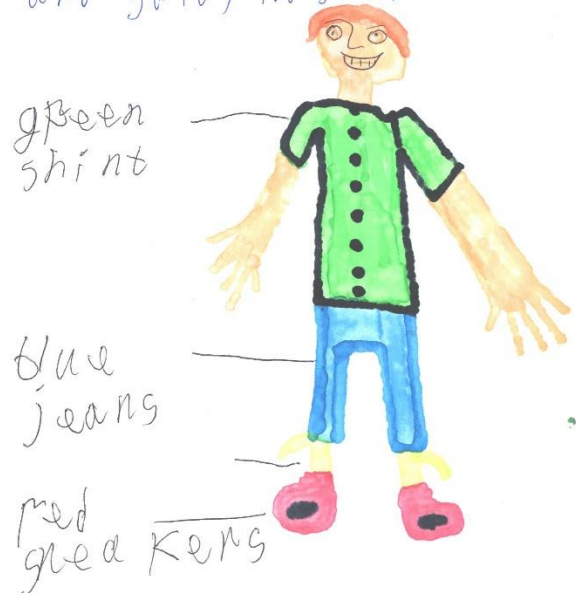 green
shint
blue
jeans
red
snea kens